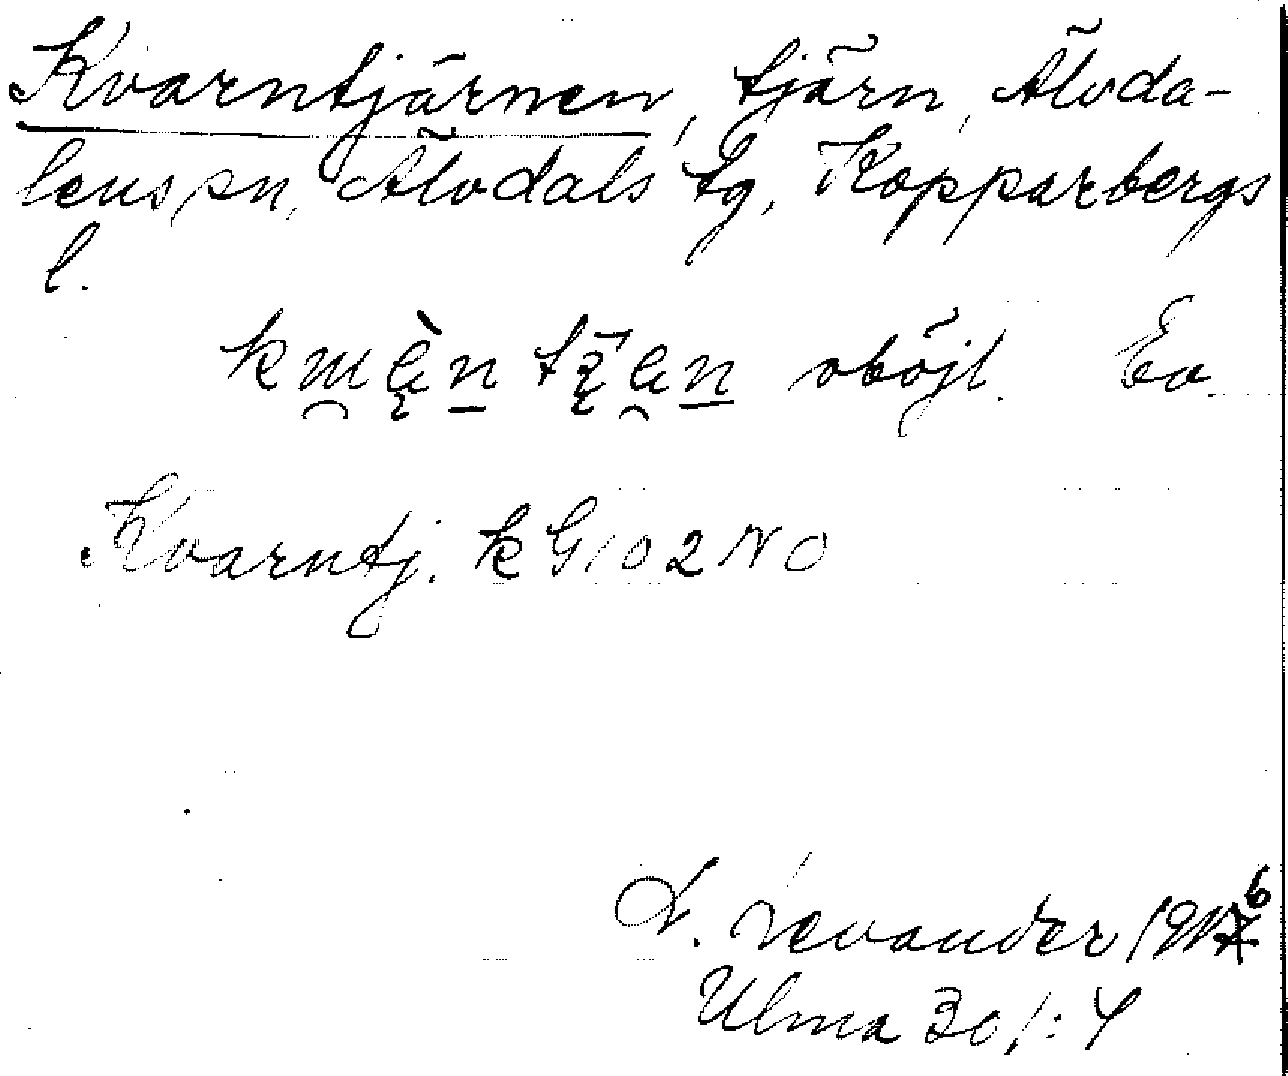 Kvarntjärnen, tjärn, Älvda-
lens sn, Älvdals tg, Kopparbergs
l.
oböjl. Ev.
Kvarntj. k G 102 NO
L. Levander 1916
Ulma 301:4